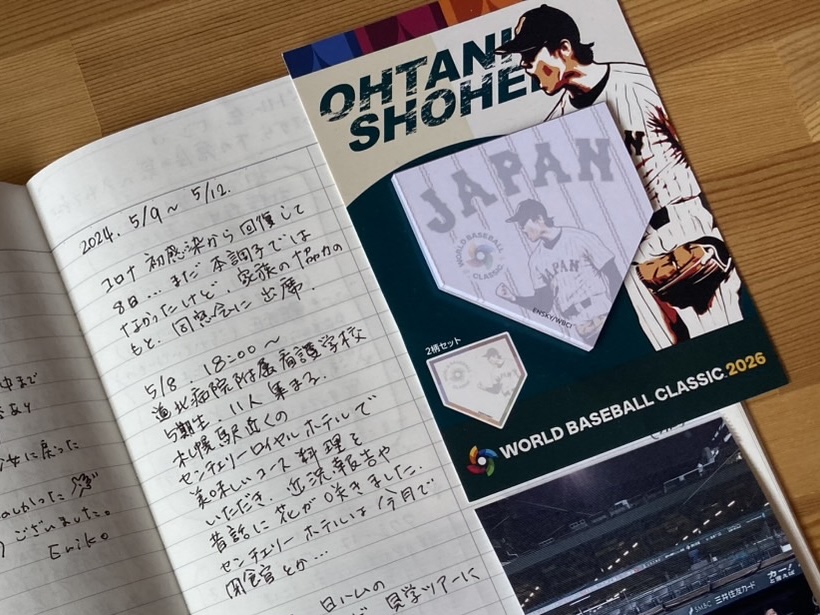 中まで
少女に戻った
ございました。
Eriko
2024. 5/9～5/12.
コロナ 初感染から 回復して
8日… まだ 本調子では
なかったけど、家族の協力の
もと、同窓会に 出席.
5/8. 18:00～
道北病院附属看護学校
5期生. 11人 集まる.
札幌駅近くの
センチュリーロイヤルホテルで
美味しいコース料理を
いただき、近況報告や
昔話に花が咲きました.
センチュリーホテルは 今月で
閉館とか…
日ハムの
見学ツアーに
OHTANI
SHOHEI
JAPAN
WORLD BASEBALL
CLASSIC
JAPAN
ENSKY/WBCI
2柄セット
WORLD BASEBALL CLASSIC 2026
三井住友カード
カー